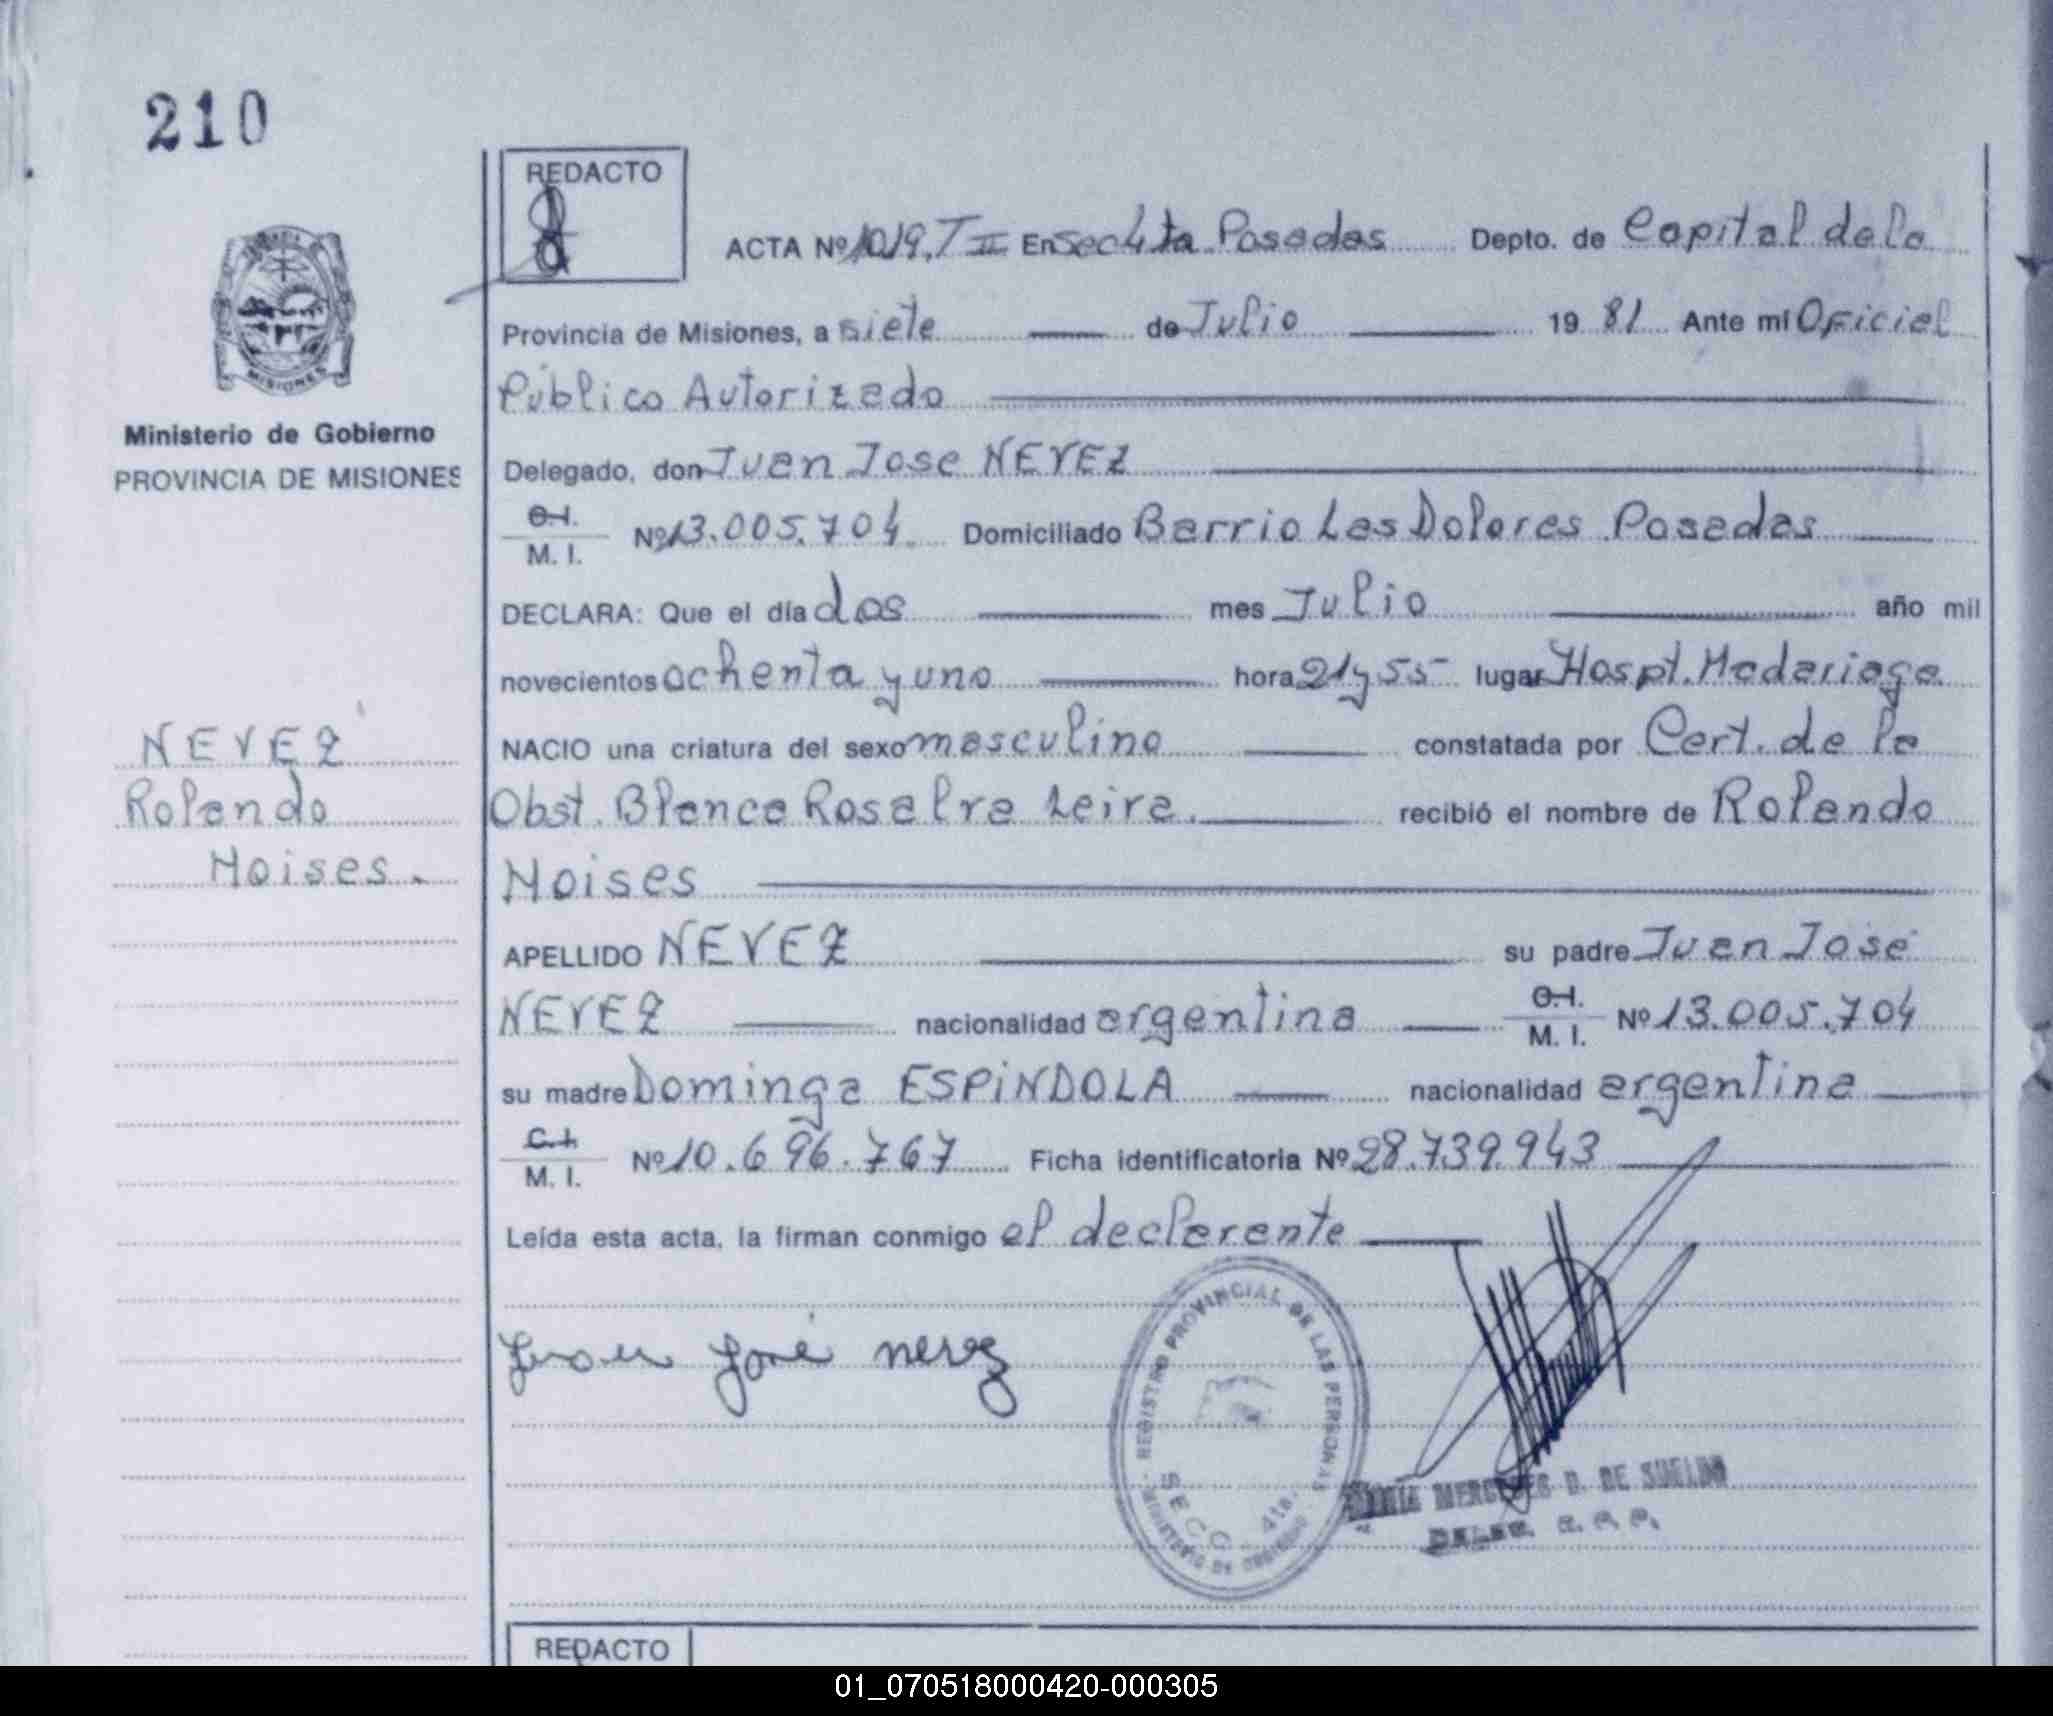 210
REDACTO
ACTA Nº 1019, T II En Secc 4ta Posadas Depto. de Capital de la
Provincia de Misiones, a siete de Julio 19 81 Ante mí Oficial
Público Autorizado
Ministerio de Gobierno
PROVINCIA DE MISIONES
Delegado, don Juan Jose NEVEZ
C.I.
M. I. Nº 13.005.704. Domiciliado Barrio Las Dolores Posadas
DECLARA: Que el día dos mes Julio año mil
novecientos ochenta y uno hora 21 y 55 lugar Hospt. Madariaga
NEVEZ
Rolando
Moises.
NACIO una criatura del sexo masculino constatada por Cert. de la
Obst. Blanca Leira. recibió el nombre de Rolando
Moises
APELLIDO NEVEZ su padre Juan José
NEVEZ nacionalidad argentina C.I.
M. I. Nº 13.005.704
su madre Dominga ESPINDOLA nacionalidad argentina
C.I.
M. I. Nº 10.696.767 Ficha identificatoria Nº 28.739.943
Leída esta acta, la firman conmigo el declarente
Juan José nevez
REGISTRO PROVINCIAL DE LAS PERSONAS
SECC. 4ta.
MINISTERIO DE GOBIERNO
MERCEDES D. DE SUELDO
REDACTO
01_070518000420-000305